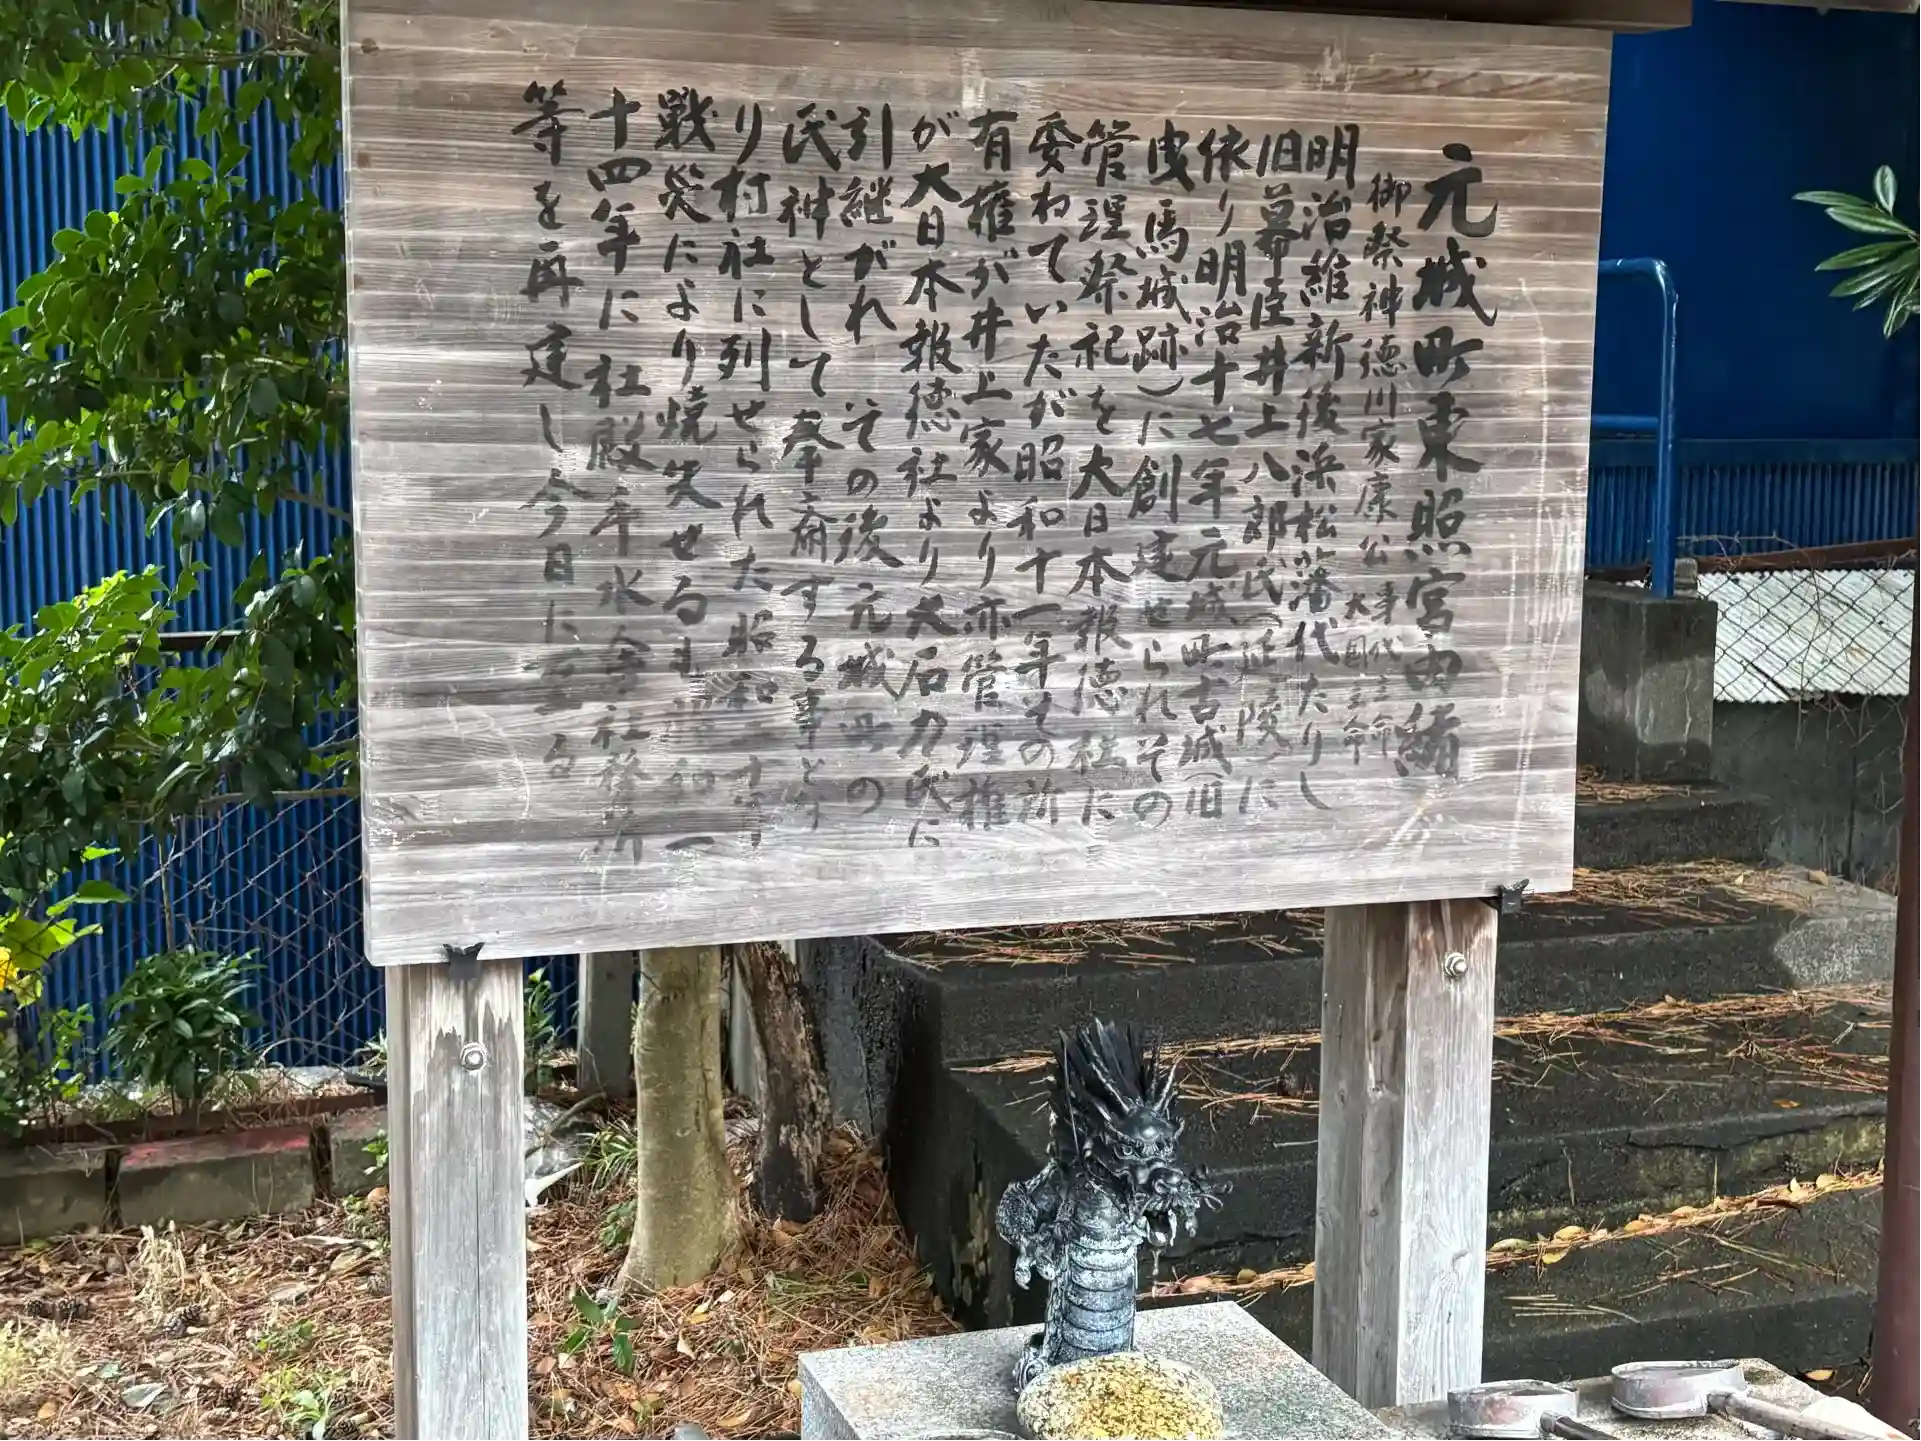 元城町東照宮由緒
御祭神徳川家康公 事代主命
大国主命
明治維新後浜松藩代たりし
旧幕臣井上八郎氏(延陵)に
依り明治十七年元城町古城(旧
曳馬城跡)に創建せられその
管理祭祀を大日本報徳社に
委ねていたが昭和十一年その所
有権が井上家より亦管理権
が大日本報徳社より大石力氏に
引継がれ その後元城町の
氏神として奉斎する事と
り村社に列せられた昭和二十年
戦災により焼失せるも昭和二
十四年に 社殿手水舎社務所
等を再建し今日に至る